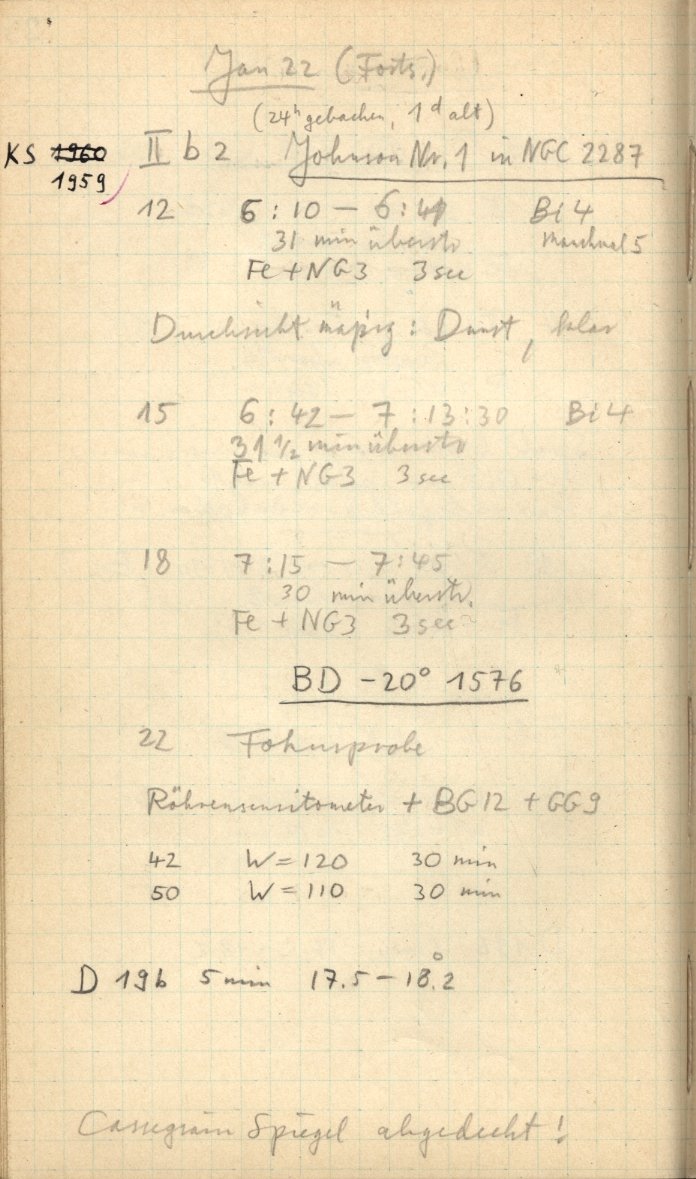 Jan 22 (Forts.)
(24h gebacken, 1d alt)
KS 1960 II b 2 Johnson Nr. 1 in NGC 2287
1959
12 6:10 — 6:41 Bi 4
31 min überstr. manchmal 5
Fe + NG3 3 sec
Durchsicht mäßig: Dunst, klar
15 6:42 — 7:13:30 Bi 4
31 1/2 min überstr.
Fe + NG3 3 sec
18 7:15 — 7:45
30 min überstr.
Fe + NG3 3 sec
BD -20° 1576
22 Fokusprobe
Röhrensensitometer + BG12 + GG9
42 W = 120 30 min
50 W = 110 30 min
D 19b 5 min 17.5 — 18°.2
Cassegrain Spiegel abgedeckt!